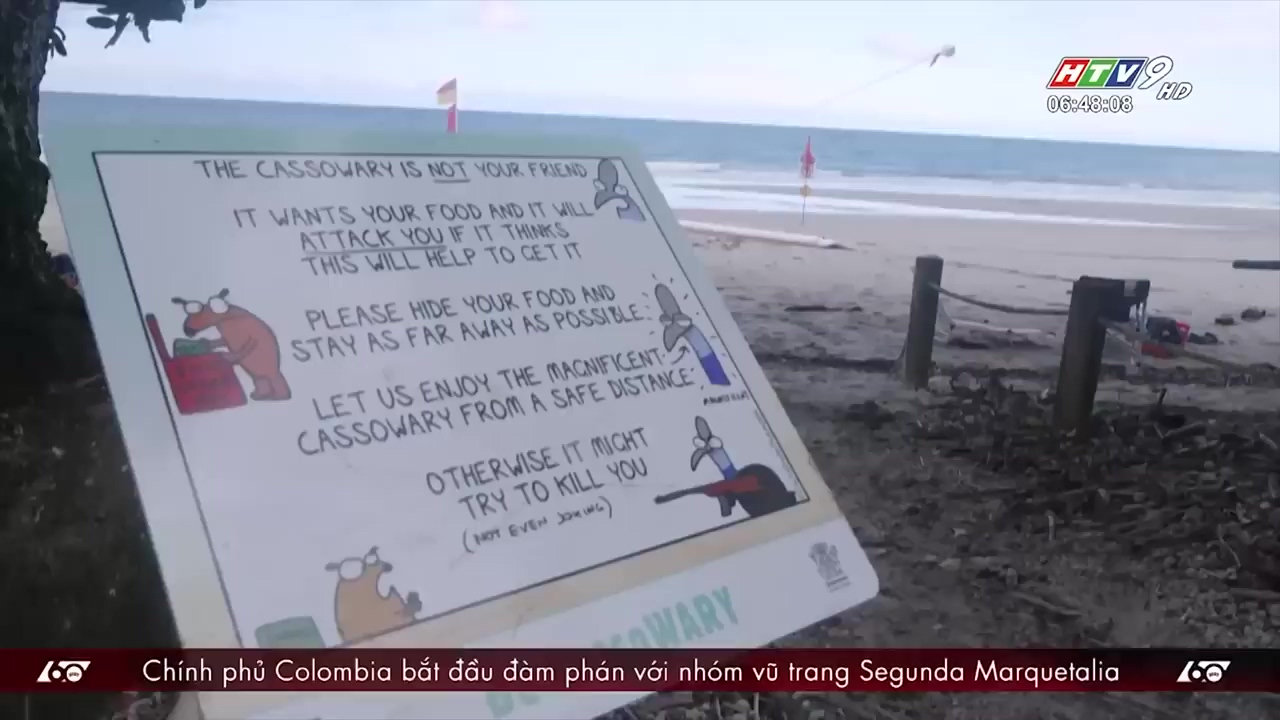 HTV9 HD
06:48:08
THE CASSOWARY IS NOT YOUR FRIEND
IT WANTS YOUR FOOD AND IT WILL
ATTACK YOU IF IT THINKS
THIS WILL HELP TO GET IT
PLEASE HIDE YOUR FOOD AND
STAY AS FAR AWAY AS POSSIBLE
LET US ENJOY THE MAGNIFICENT
CASSOWARY FROM A SAFE DISTANCE
OTHERWISE IT MIGHT
TRY TO KILL YOU
(NOT EVEN JOKING)
60 Chính phủ Colombia bắt đầu đàm phán với nhóm vũ trang Segunda Marquetalia 60